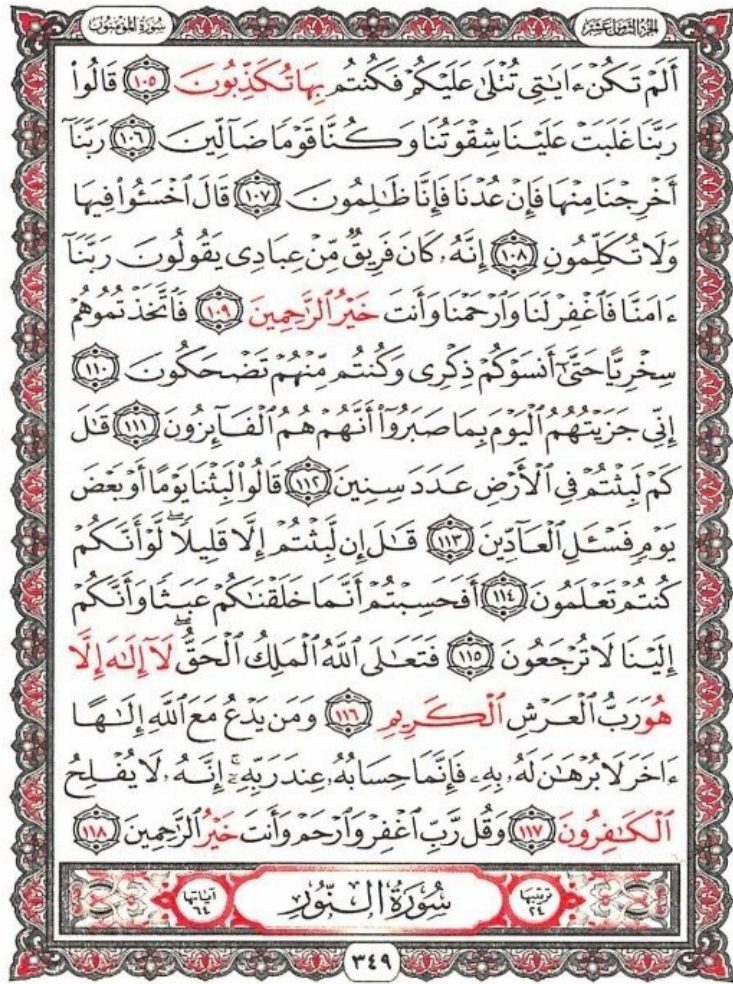 سُورَةُ المُؤْمِنُونَ
الجُزءُ الثَّامِنَ عَشَرَ
أَلَمْ تَكُنْ ءَايَٰتِى تُتْلَىٰ عَلَيْكُمْ فَكُنتُم بِهَا تُكَذِّبُونَ ١٠٥ قَالُوا۟
رَبَّنَا غَلَبَتْ عَلَيْنَا شِقْوَتُنَا وَكُنَّا قَوْمًا ضَآلِّينَ ١٠٦ رَبَّنَآ
أَخْرِجْنَا مِنْهَا فَإِنْ عُدْنَا فَإِنَّا ظَٰلِمُونَ ١٠٧ قَالَ ٱخْسَـُٔوا۟ فِيهَا
وَلَا تُكَلِّمُونِ ١٠٨ إِنَّهُۥ كَانَ فَرِيقٌ مِّنْ عِبَادِى يَقُولُونَ رَبَّنَآ
ءَامَنَّا فَٱغْفِرْ لَنَا وَٱرْحَمْنَا وَأَنتَ خَيْرُ ٱلرَّٰحِمِينَ ١٠٩ فَٱتَّخَذْتُمُوهُمْ
سِخْرِيًّا حَتَّىٰٓ أَنسَوْكُمْ ذِكْرِى وَكُنتُم مِّنْهُمْ تَضْحَكُونَ ١١٠
إِنِّى جَزَيْتُهُمُ ٱلْيَوْمَ بِمَا صَبَرُوٓا۟ أَنَّهُمْ هُمُ ٱلْفَآئِزُونَ ١١١ قَٰلَ
كَمْ لَبِثْتُمْ فِى ٱلْأَرْضِ عَدَدَ سِنِينَ ١١٢ قَالُوا۟ لَبِثْنَا يَوْمًا أَوْ بَعْضَ
يَوْمٍ فَسْـَٔلِ ٱلْعَآدِّينَ ١١٣ قَٰلَ إِن لَّبِثْتُمْ إِلَّا قَلِيلًا ۖ لَّوْ أَنَّكُمْ
كُنتُمْ تَعْلَمُونَ ١١٤ أَفَحَسِبْتُمْ أَنَّمَا خَلَقْنَٰكُمْ عَبَثًا وَأَنَّكُمْ
إِلَيْنَا لَا تُرْجَعُونَ ١١٥ فَتَعَٰلَى ٱللَّهُ ٱلْمَلِكُ ٱلْحَقُّ ۖ لَآ إِلَٰهَ إِلَّا
هُوَ رَبُّ ٱلْعَرْشِ ٱلْكَرِيمِ ١١٦ وَمَن يَدْعُ مَعَ ٱللَّهِ إِلَٰهًا
ءَاخَرَ لَا بُرْهَٰنَ لَهُۥ بِهِۦ فَإِنَّمَا حِسَابُهُۥ عِندَ رَبِّهِۦٓ ۚ إِنَّهُۥ لَا يُفْلِحُ
ٱلْكَٰفِرُونَ ١١٧ وَقُل رَّبِّ ٱغْفِرْ وَٱرْحَمْ وَأَنتَ خَيْرُ ٱلرَّٰحِمِينَ ١١٨
ترتيبها ٢٤
سُورَةُ النُّورِ
آياتها ٦٤
٣٤٩